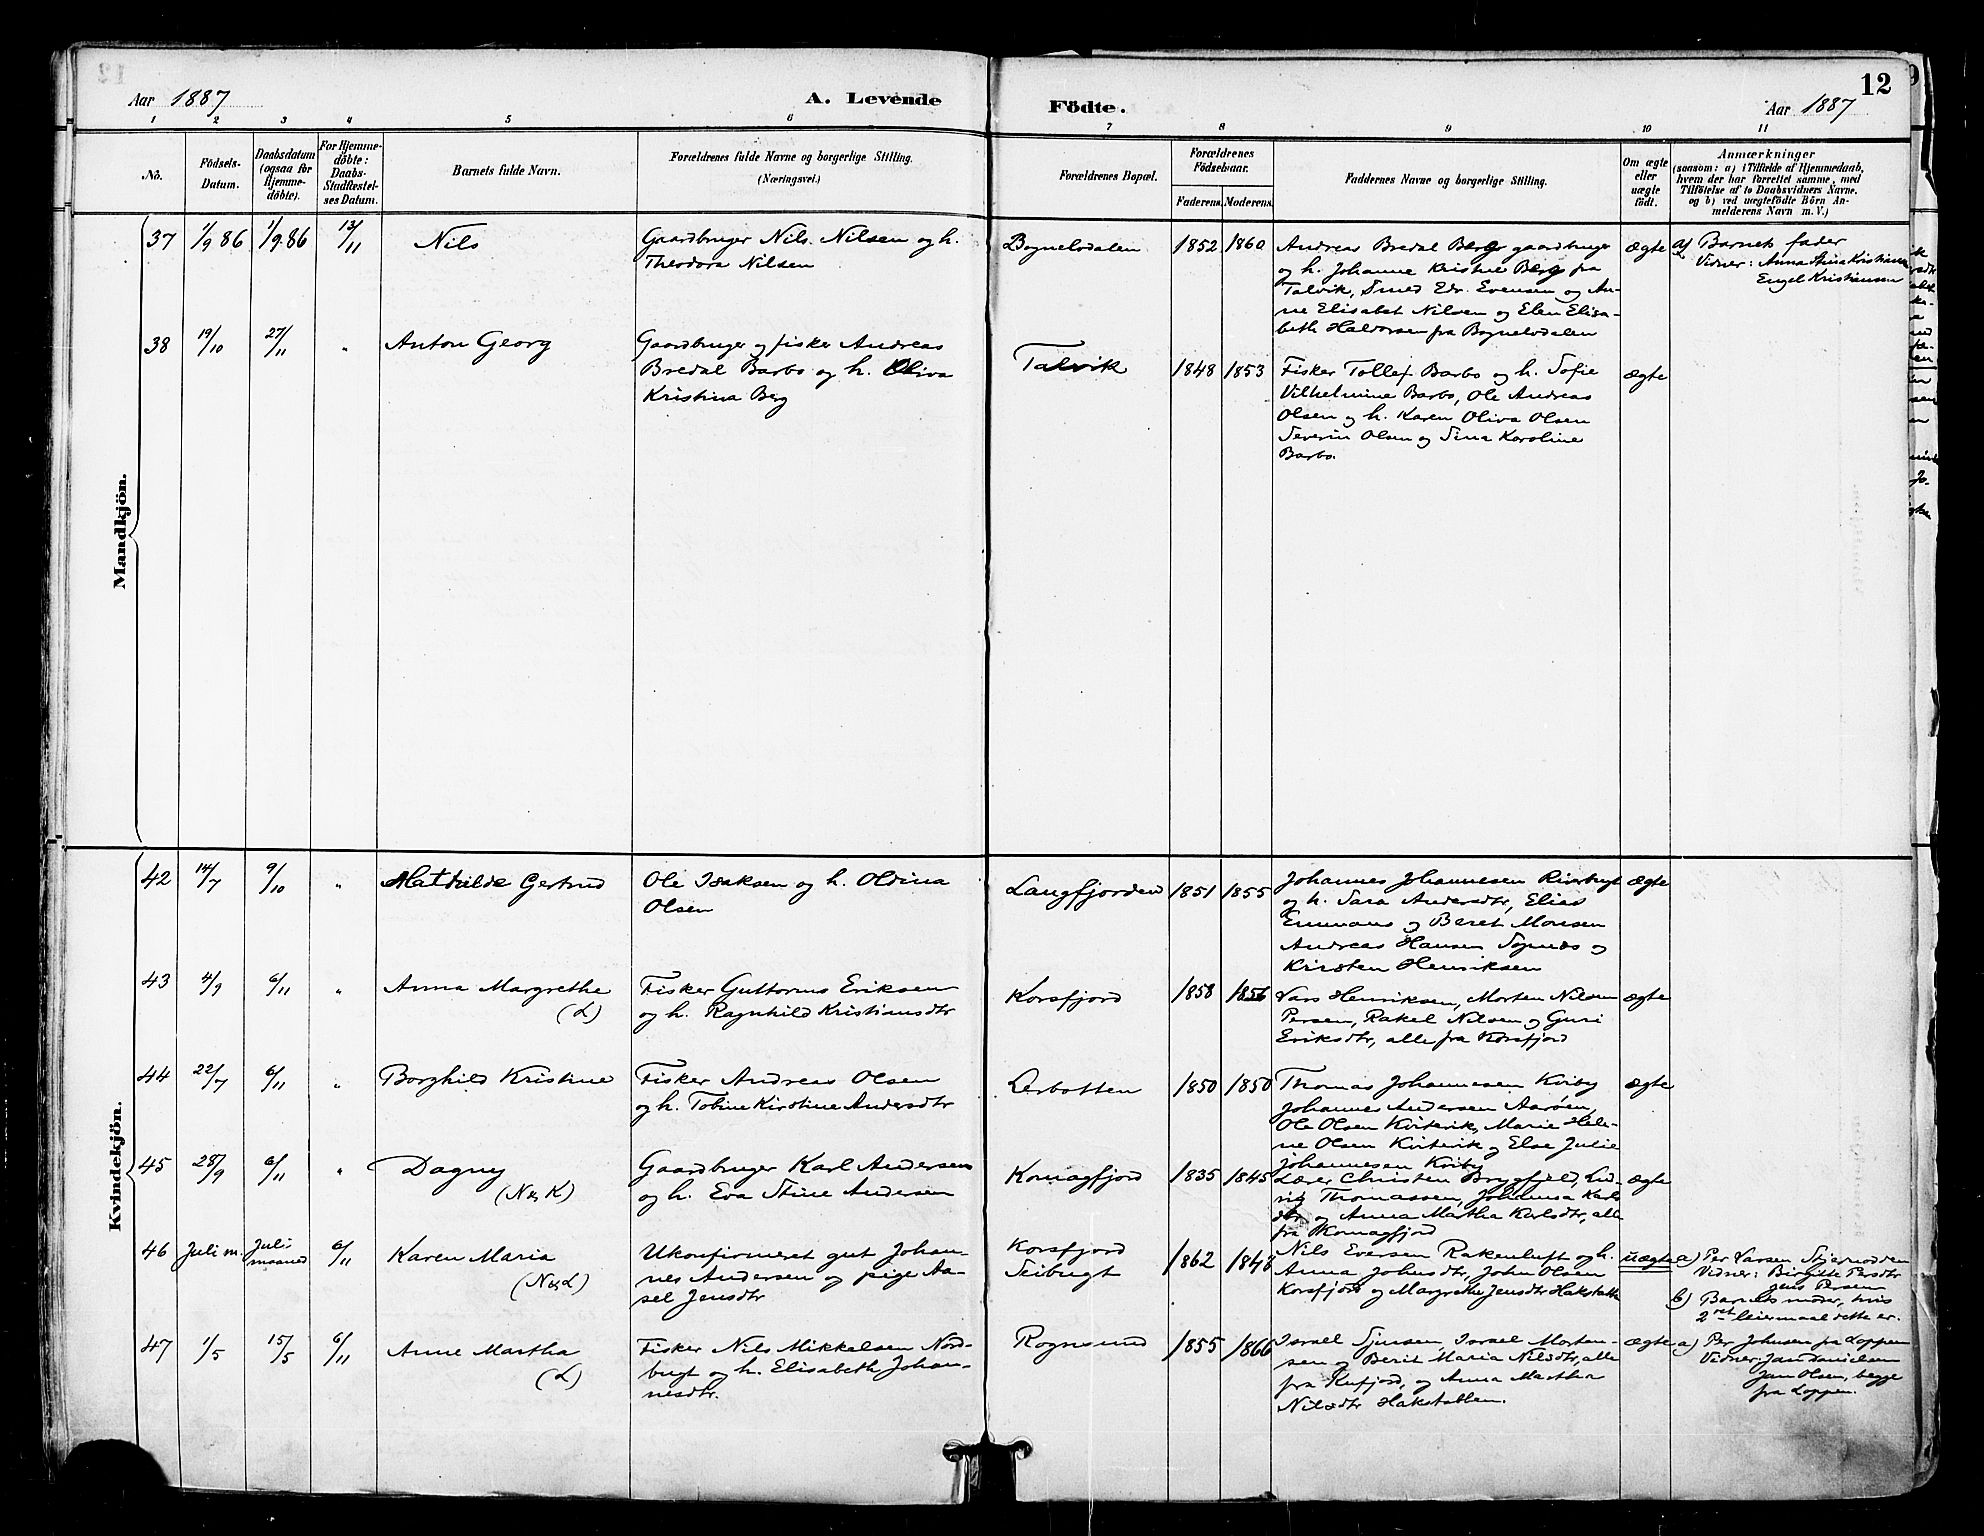 12
Aar 1887
A. Levende Födte.
Aar 1887
1 2 3 4 5 6 7 8 9 10 11
No.
Födsels-
Datum.
Daabsdatum
(ogsaa for
Hjemme-
döbte).
For Hjemme-
döbte:
Daabs-
Stadfæstel-
ses Datum.
Barnets fulde Navn.
Forældrenes fulde Navne og borgerlige Stilling.
(Næringsvei.)
Forældrenes Bopæl.
Forældrenes
Födselsaar.
Faderens. Moderens.
Faddernes Navne og borgerlige Stilling.
Om ægte
eller
uægte
født.
Anmærkninger
(saasom: a) i Tilfælde af Hjemmedaab,
hvem der har forrettet samme, med
Tilföielse af to Daabsvidners Navne,
og b) ved uægtefödte Börn An-
melderens Navn m. V.)
Mandkjön.
37 1/9 86 1/9.86 13/11 Nils
Gaardbruger Nils. Nilsen og h.
Theodora Nilsen
Bognelvdalen 1852 1860
Andreas Bredal Berg gaardbruger
og h. Johanne Kristine Berg fra
Talvik, Smed Edv. Evensen og An-
ne Elisabet Nilsen og Elen Elisa-
beth Haldorsen fra Bognelvdalen
ægte
a) Barnets fader
Vidner: Anna Stina Kristiansen
Engel Kristiansen
38 19/10 27/11 " Anton Georg
Gaardbruger og fisker Andreas
Bredal Barbo og h. Oliva
Kristina Berg
Talvik 1848 1853
Fisker Tollef Barbo og h. Sofie
Vilhelmine Barbo, Ole Andreas
Olsen og h. Karen Oliva Olsen
Severin Olsen og Sina Karoline
Barbo.
ægte
Kvindekjön.
42 14/7 9/10 " Mathilde Gertrud
Ole Isaksen og h. Oldina
Olsen
Langfjorden 1851 1855
Johannes Johannesen Riverbugt
og h. Sara Andersdtr, Elias
Emmaus og Beret Monsen
Andreas Hansen Sognæs og
Kirsten Henriksen
ægte
43 4/9 6/11 " Anna Margrethe
(L)
Fisker Guttorms Eriksen
og h. Ragnhild Kristiansdtr
Korsfjord 1858 1856
Lars Henriksen, Morten Nilsen
Persen, Rakel Nilsen og Guri
Eriksdtr, alle fra Korsfjord
ægte
44 22/7 6/11 " Borghild Kristine
Fisker Andreas Olsen
og h. Tobine Kirstine Andersdtr
Lerbotten 1850 1850
Thomas Johannesen Kviby
Johannes Andersen Aarøen,
Ole Olsen Kvitvik, Marie Hele-
ne Olsen Kvitvik og Else Julie
Johannesen Kviby
ægte
45 28/9 6/11 " Dagny
(N&K)
Gaardbruger Karl Andersen
og h. Eva Stine Andersen
Komagfjord 1835 1845
Lærer Christen Brygfjeld, Lud-
vig Thomassen, Johanna Karls
dtr og Anna Martha Karlsdtr, alle
fra Komagfjord
ægte
46 Juli m. Juli
maaned 6/11 Karen Maria
(N&L)
Ukonfirmeret gut Johan-
nes Andersen og pige Aa-
sel Jensdtr
Korsfjord
Seibugt 1862 1848
Nils Eversen Rakenluft og h.
Anna Johnsdtr, John Olsen
Korsfjord og Margrethe Jensdtr Hakstabben
uægte
a) Per Larsen Stjernodden
Vidner: Birgitte Persdtr
Jens Persen
b) Barnets moder, hvis
2ret leiermaal dette er.
47 1/5 15/5 6/11 Anne Martha
(L)
Fisker Nils Mikkelsen Nord-
bugt og h. Elisabeth Johan-
nesdtr.
Rognsund 1855 1866
Israel Sjursen, Israel Morten-
sen og Berit Maria Nilsdtr, alle
fra Kufjord, og Anna Martha
Nilsdtr Hakstabben.
ægte
a) Per Johnsen fra Loppen
Vidner: Jan Danielsen
Jan Olsen, begge
fra Loppen.